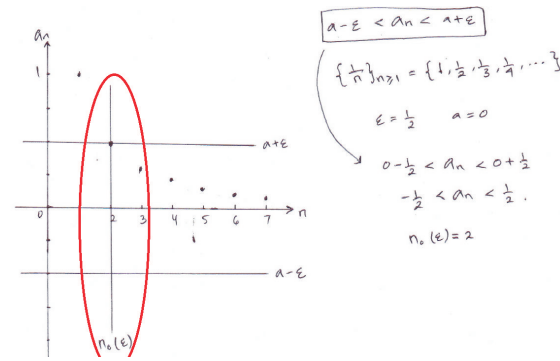 aₙ
1
a+ε
0 2 3 4 5 6 7 n
a-ε
n₀(ε)
a-ε < aₙ < a+ε
{1/n}ₙ≥₁ = {1, 1/2, 1/3, 1/4, ...}
ε = 1/2 a=0
0-1/2 < aₙ < 0+1/2
-1/2 < aₙ < 1/2.
n₀(ε)=2